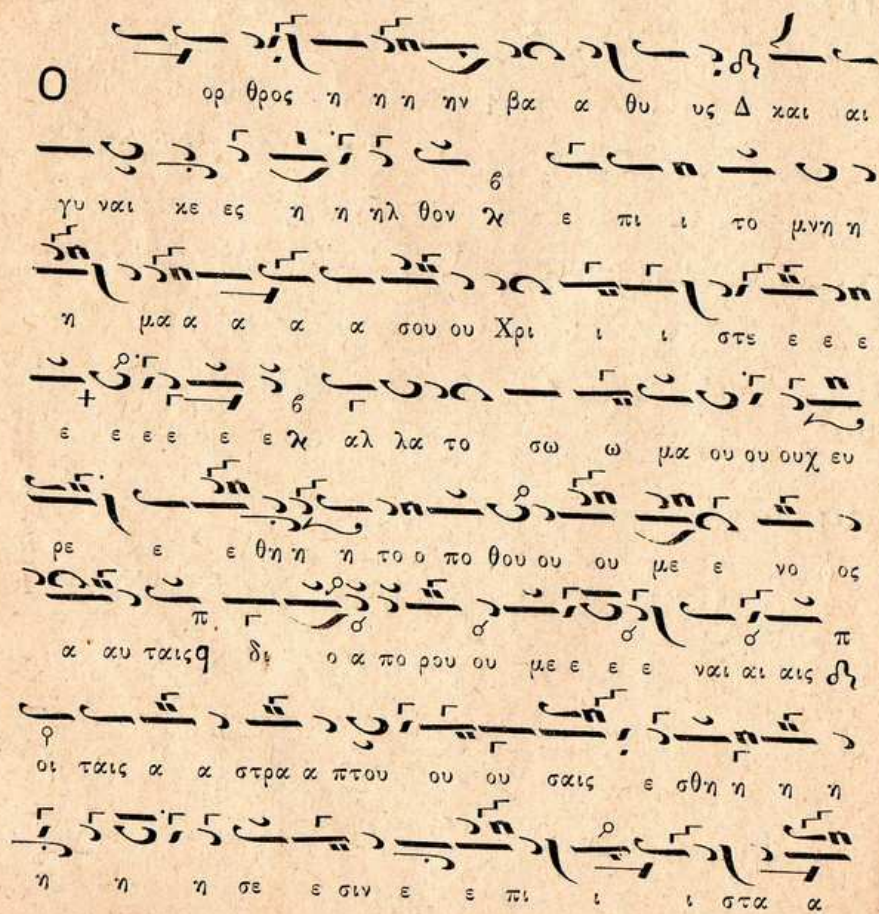 Ο ορ θρος η η η ην βα α θυ υς Δ και αι
γυ ναι κε ες η η ηλ θον ε πι ι το μνη η
η μα α α α α σου ου Χρι ι ι στε ε ε ε
ε ε ε ε ε ε αλ λα το σω ω μα ου ου ουχ ευ
ρε ε ε θη η η το ο πο θου ου ου με ε νο ος
α αυ ταις q δι ο α πο ρου ου με ε ε ε ναι αι αις
οι ταις α α στρα α πτου ου ου σαις ε σθη η η η
η η η σε ε σιν ε ε πι ι ι στα α